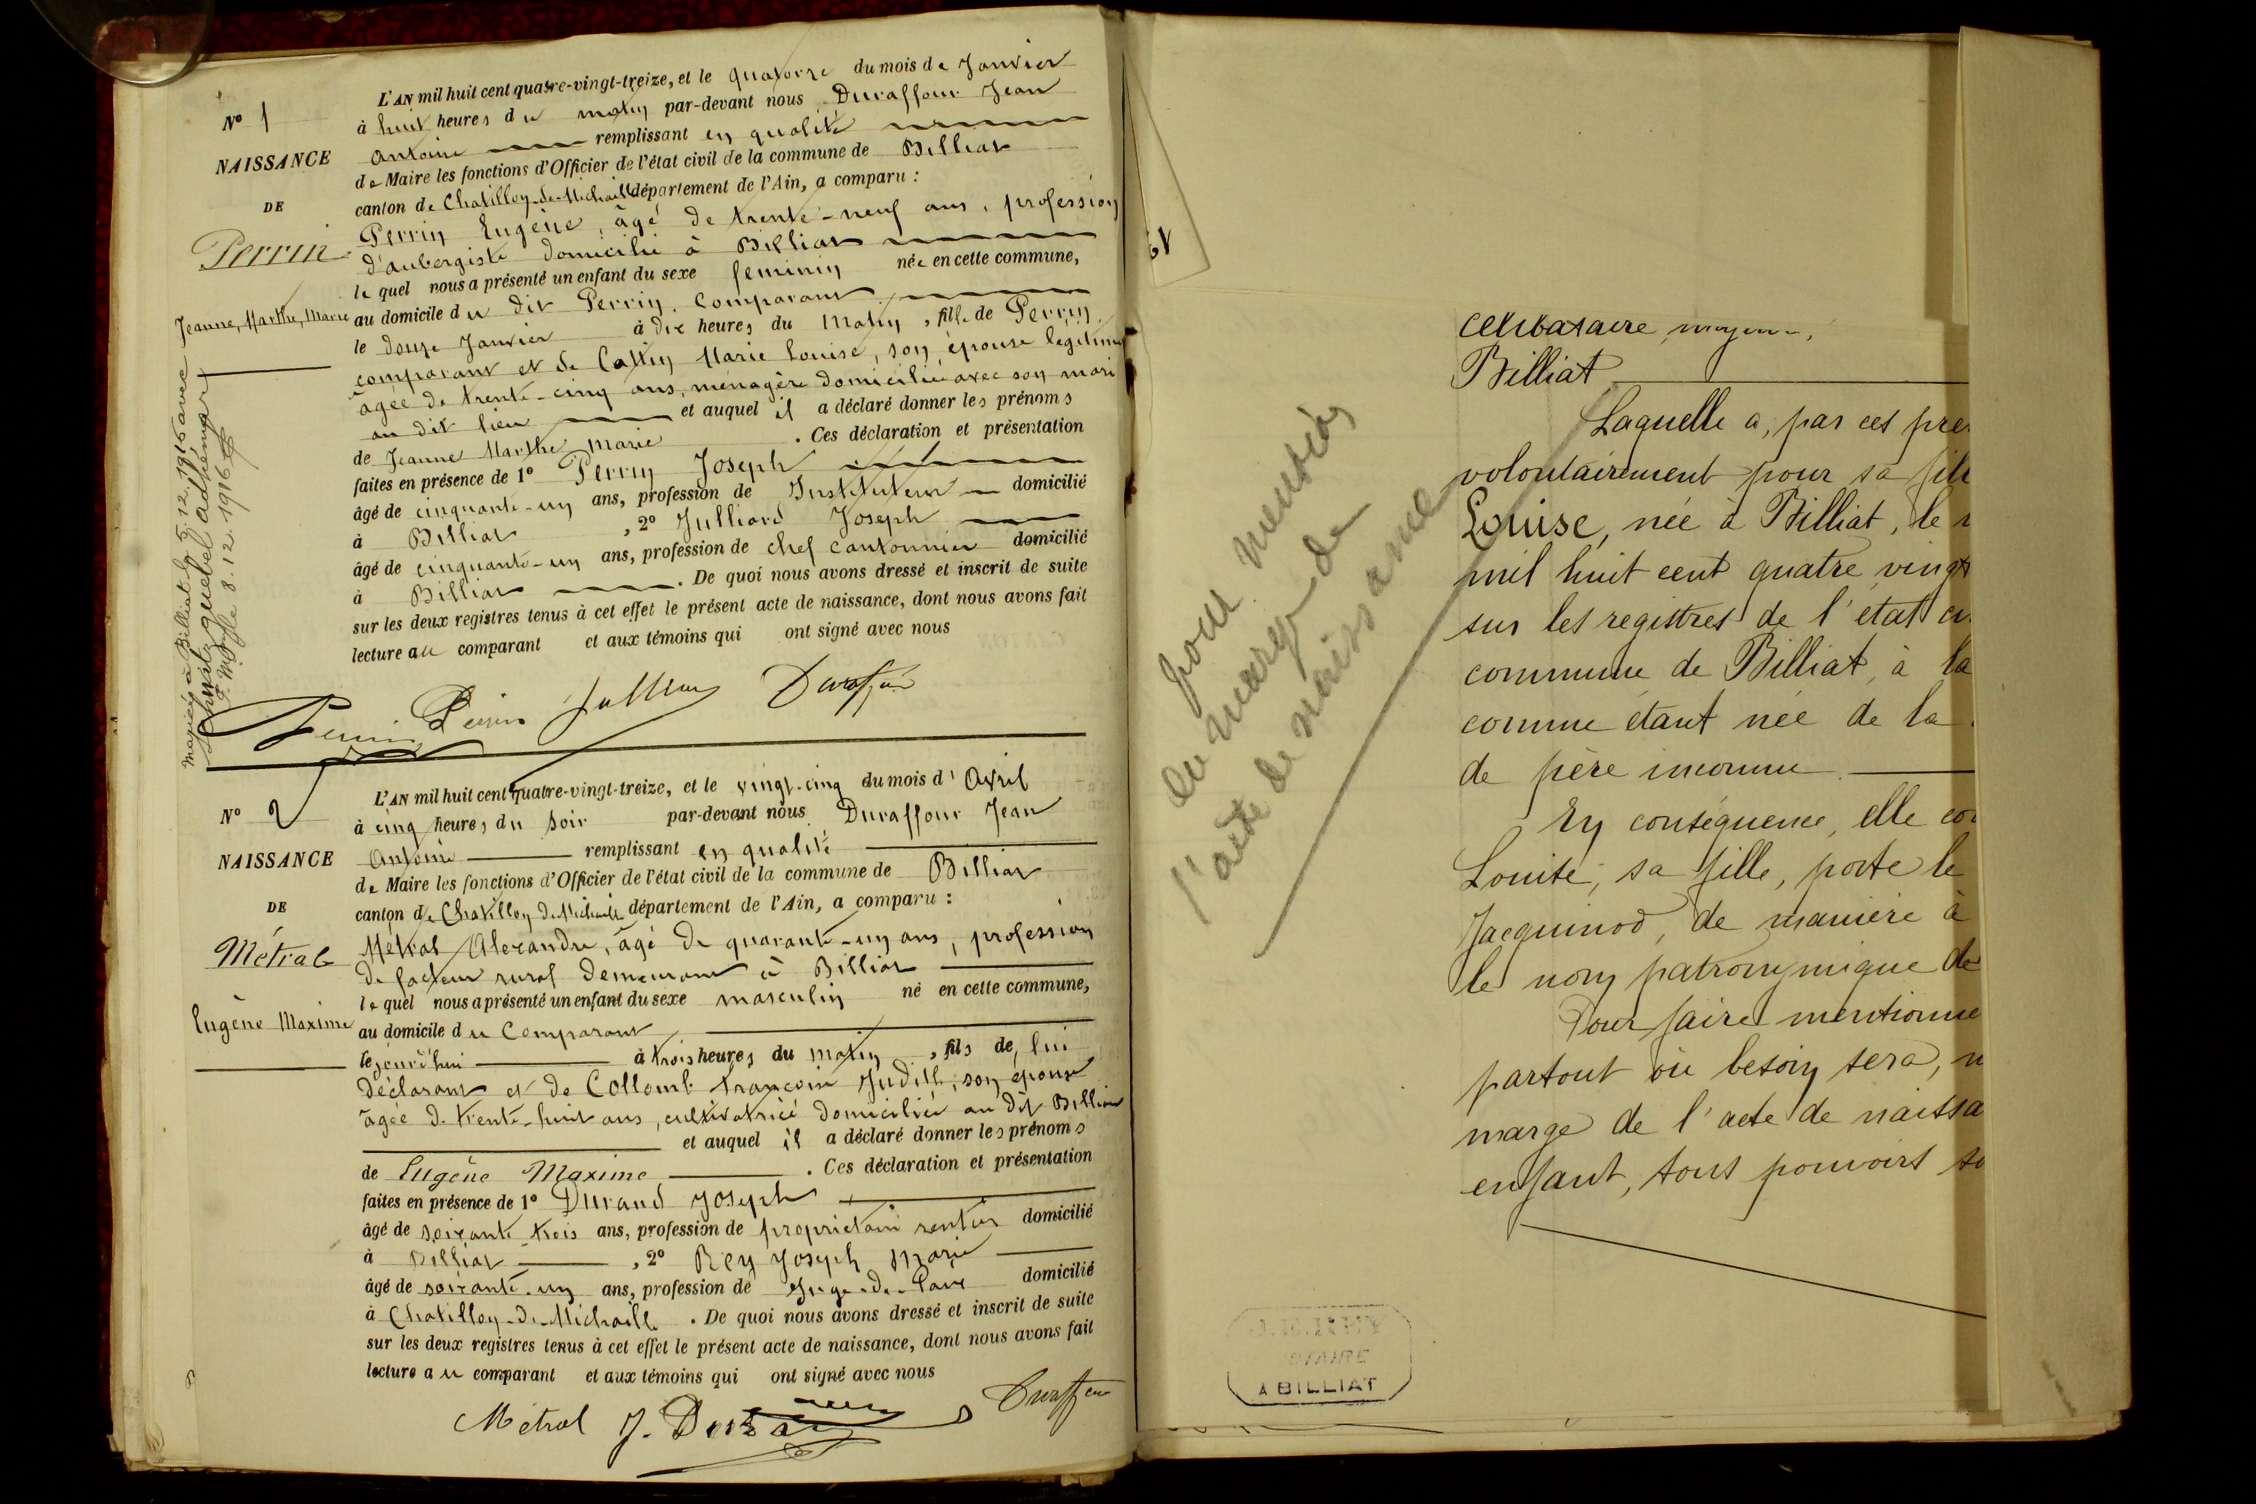 N° 1
NAISSANCE
DE
Perrin
Jeanne, Marthe, Marie
L'AN mil huit cent quatre-vingt-treize, et le quatorze du mois de Janvier
à huit heures du matin par-devant nous Duraffour Jean
Antoine remplissant en qualité
de Maire les fonctions d'Officier de l'état civil de la commune de Billiat
canton de Chatillon-de-Michaille département de l'Ain, a comparu :
Perrin Eugène, âgé de trente-neuf ans, profession
d'aubergiste domicilié à Billiat
le quel nous a présenté un enfant du sexe feminin née en cette commune,
au domicile du dit Perrin, comparant
le douze Janvier à dix heures du matin, fille de Perrin
comparant et de Marie Louise, son épouse légitime
âgée de trente-cinq ans, ménagère domiciliée avec son mari
au dit lieu et auquel il a déclaré donner les prénoms
de Jeanne Marthe Marie. Ces déclaration et présentation
faites en présence de 1° Perrin Joseph
âgé de cinquante-un ans, profession de Instituteur domicilié
à Billiat, 2° Julliard Joseph
âgé de cinquante-un ans, profession de chef cantonnier domicilié
à Billiat. De quoi nous avons dressé et inscrit de suite
sur les deux registres tenus à cet effet le présent acte de naissance, dont nous avons fait
lecture au comparant et aux témoins qui ont signé avec nous
Mariée à Billiat le 5.12.1916 avec
8.12.1916
Perrin Perrin Julliard Duraffour
N° 2
NAISSANCE
DE
Métral
Eugène Maxime
L'AN mil huit cent quatre-vingt-treize, et le vingt-cinq du mois d'Avril
à cinq heures du soir par-devant nous Duraffour Jean
Antoine remplissant en qualité
de Maire les fonctions d'Officier de l'état civil de la commune de Billiat
canton de Chatillon-de-Michaille département de l'Ain, a comparu :
Métral Alexandre, âgé de quarante-un ans, profession
de facteur rural demeurant à Billiat
le quel nous a présenté un enfant du sexe masculin né en cette commune,
au domicile du comparant
le jourd'hui à trois heures du matin, fils de lui
déclarant et de Collomb Françoise Judith, son épouse
âgée de trente-huit ans, cultivatrice domiciliée au dit Billiat
et auquel il a déclaré donner les prénoms
de Eugène Maxime. Ces déclaration et présentation
faites en présence de 1° Durand Joseph
âgé de soixante-trois ans, profession de propriétaire rentier domicilié
à Billiat, 2° Rey Joseph Marie
âgé de soixante-un ans, profession de Juge-de-Paix domicilié
à Chatillon-de-Michaille. De quoi nous avons dressé et inscrit de suite
sur les deux registres tenus à cet effet le présent acte de naissance, dont nous avons fait
lecture au comparant et aux témoins qui ont signé avec nous
Métral J. Durand Duraffour
pour mention
en marge de
l'acte de naissance
célibataire
Billiat
Laquelle a, par ces pre
volontairement pour sa fill
Louise, née à Billiat, le
mil huit cent quatre vingt
sur les registres de l'état ci
commune de Billiat, à la
comme étant née de la
de père inconnu
En conséquence, elle con
Louise, sa fille, porte le
Jacquinod, de manière à
le nom patronymique de
Pour faire mentionne
partout où besoin sera,
marge de l'acte de naissa
enfant, tous pouvoirs so
A BILLIAT